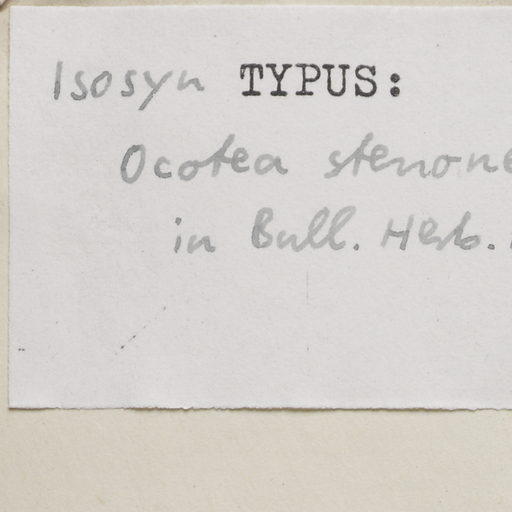 Isosyn TYPUS:
Ocotea stenone
in Bull. Herb.